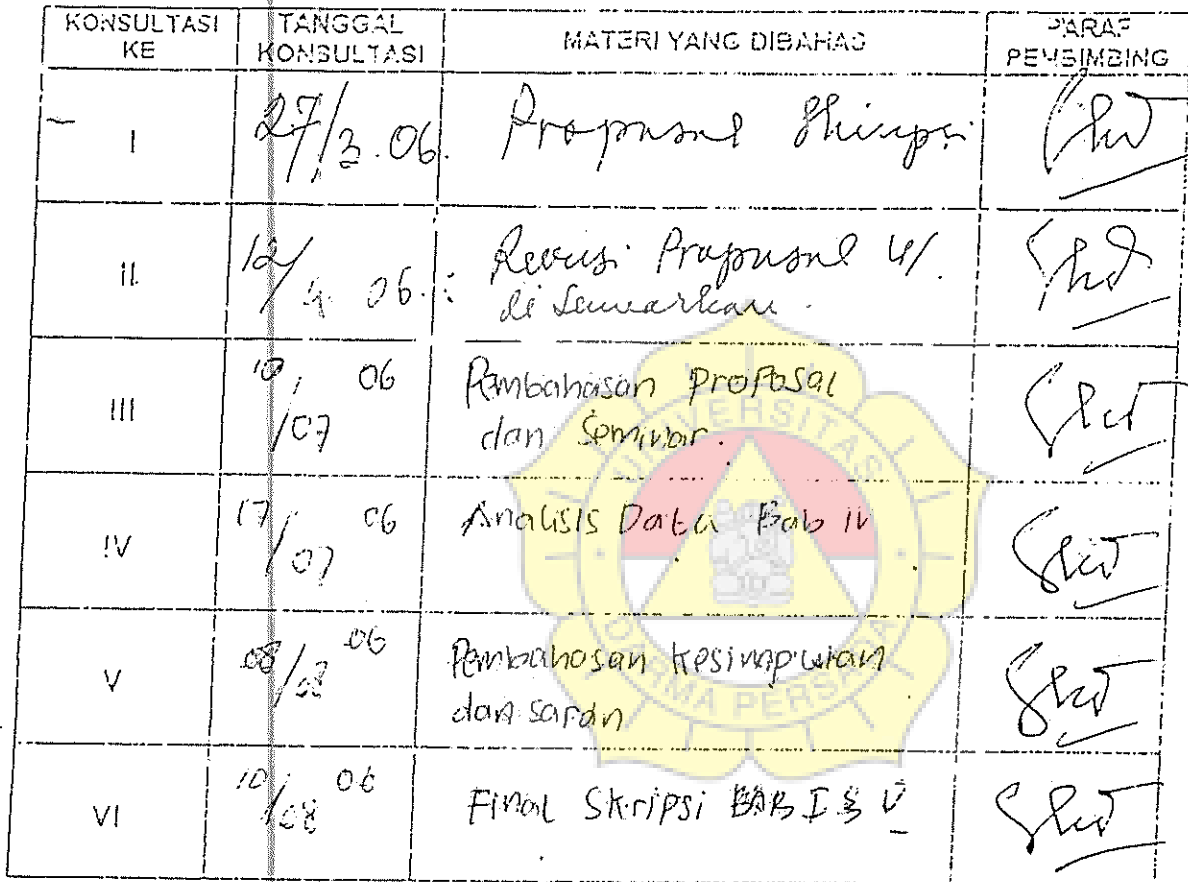 KONSULTASI KE
TANGGAL KONSULTASI
MATERI YANG DIBAHAS
PARAF PEMBIMBING
I
27/3.06.
Proposal Skripsi
II
12/4 06.:
Revisi Proposal U/.
di Seminarkan.
III
10/07 06
Pembahasan proposal
dan Seminar.
IV
17/07 06
Analisis Data Bab IV
V
08/08 06
Pembahasan Kesimpulan
dan saran
VI
10/08 06
Final Skripsi BAB I
UNIVERSITAS
DARMA PERSADA